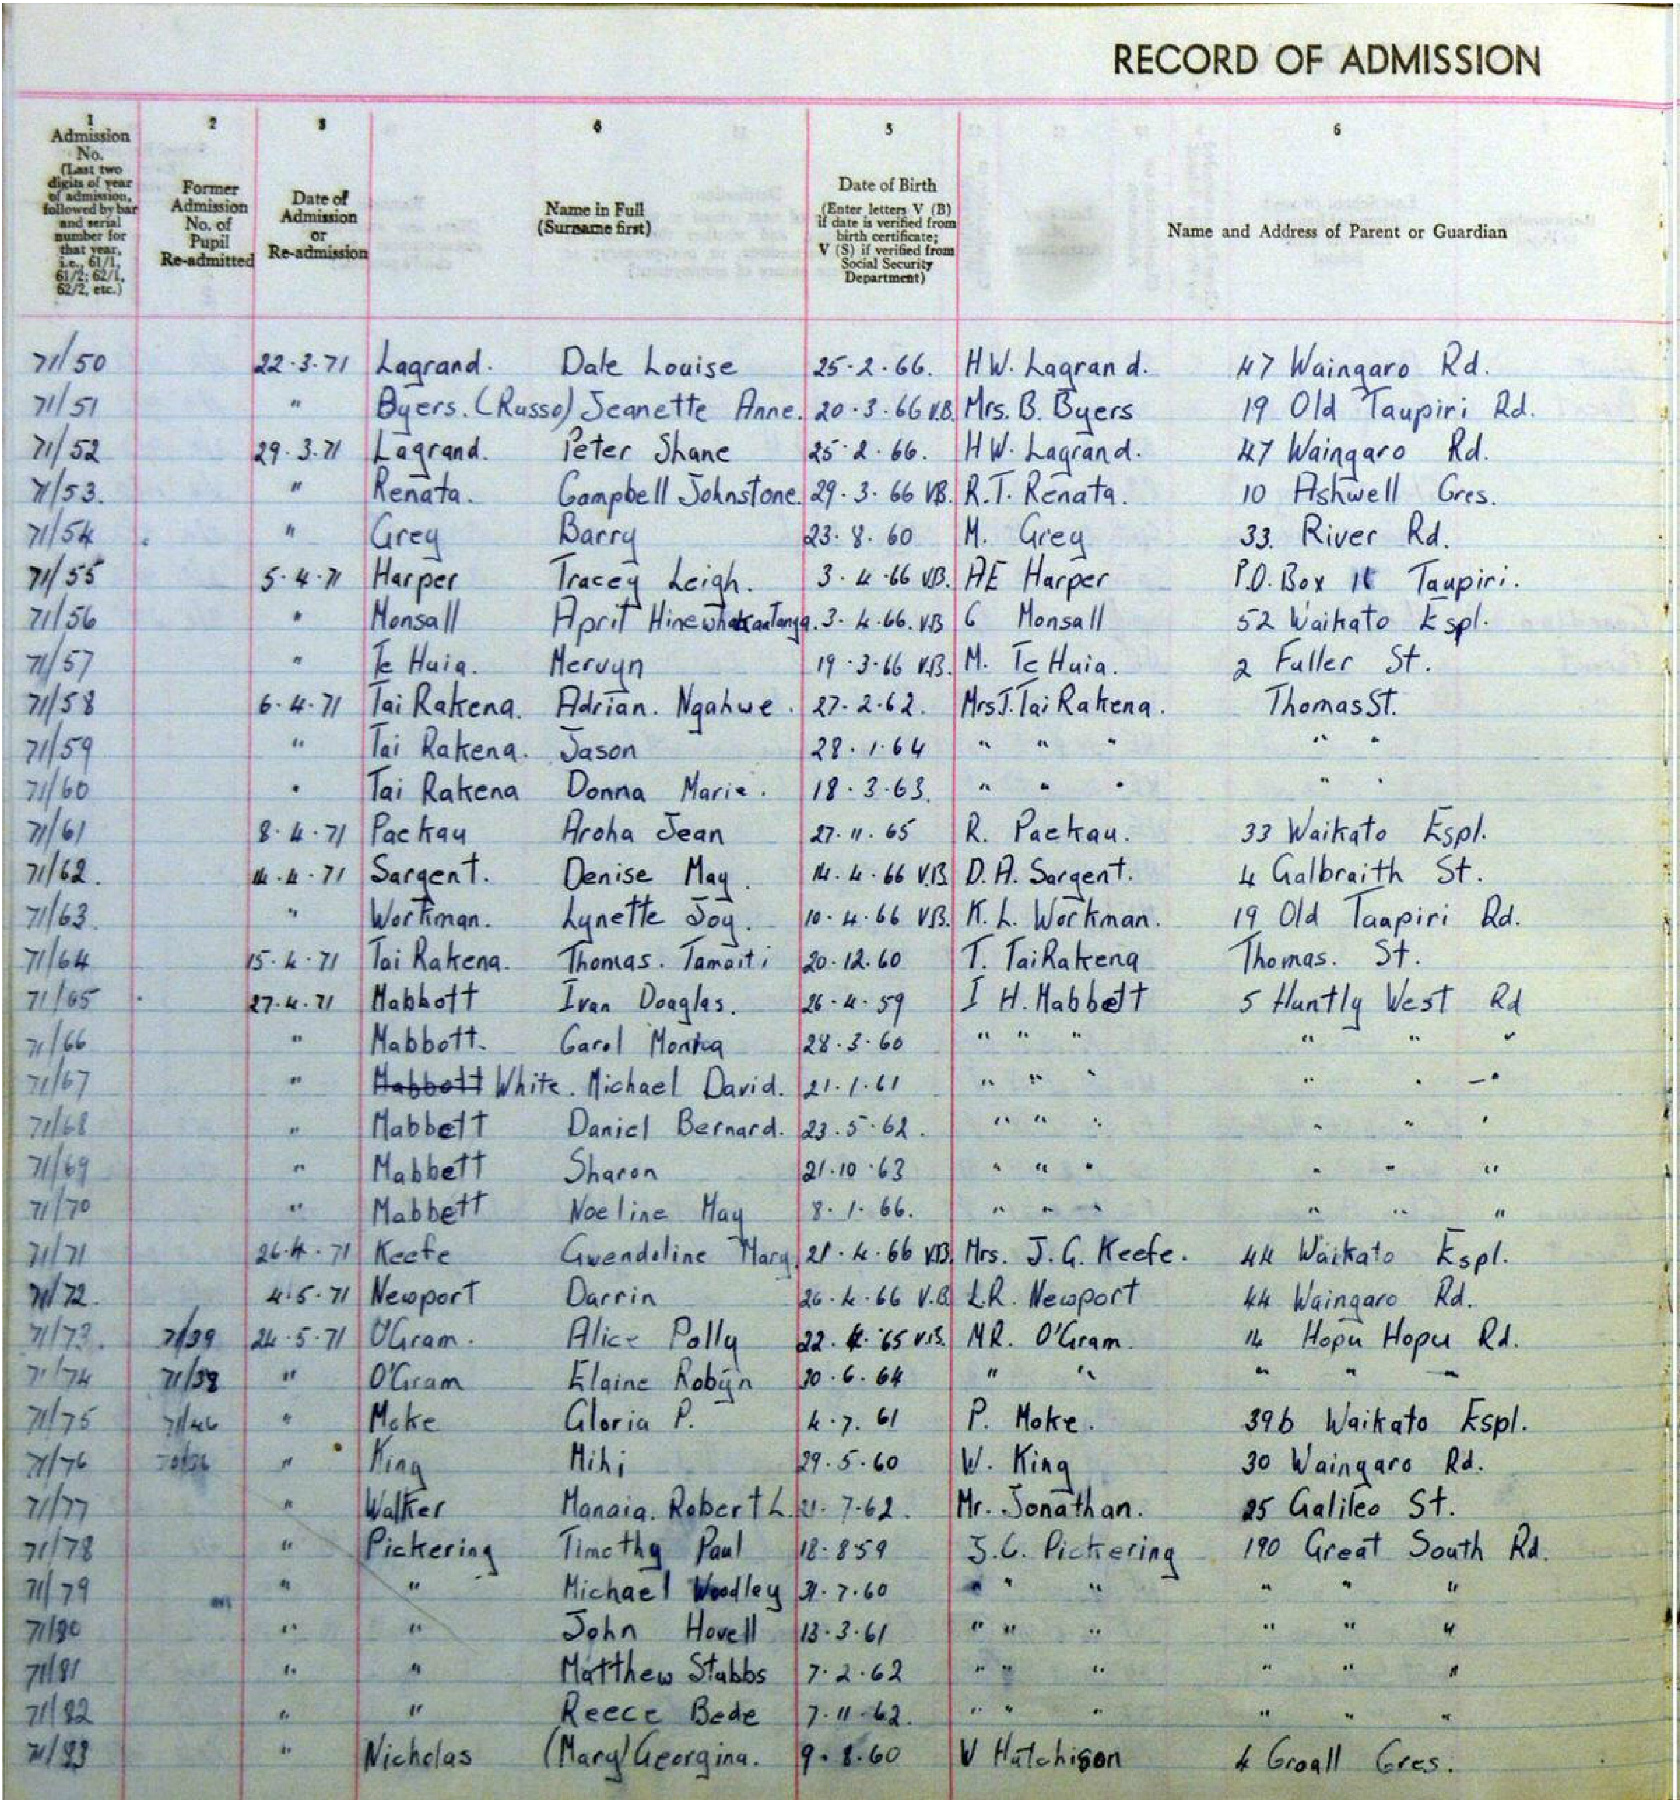 RECORD OF ADMISSION
1 2 3 4 5 6
Admission No. (Last two digits of year of admission, followed by bar and serial number for that year, i.e., 61/1, 61/2; 62/1, 62/2, etc.)
Former Admission No. of Pupil Re-admitted
Date of Admission or Re-admission
Name in Full (Surname first)
Date of Birth (Enter letters V (B) if date is verified from birth certificate; V (S) if verified from Social Security Department)
Name and Address of Parent or Guardian
71/50 22·3·71 Lagrand. Dale Louise 25·2·66. H W. Lagrand. 47 Waingaro Rd.
71/51 " Byers. (Russo) Jeanette Anne. 20·3·66 V.B. Mrs. B. Byers 19 Old Taupiri Rd.
71/52 29·3·71 Lagrand. Peter Shane 25·2·66. H W. Lagrand. 47 Waingaro Rd.
71/53. " Renata. Campbell Johnstone. 29·3·66 V.B. R.T. Renata. 10 Ashwell Cres.
71/54 " Grey Barry 23·8·60 M. Grey 33. River Rd.
71/55 5·4·71 Harper Tracey Leigh. 3·4·66 V.B. AE Harper P.O. Box Taupiri.
71/56 " Monsall April 3·4·66. V.B Monsall 52 Waikato Espl.
71/57 " Te Huia. Mervyn 19·3·66 V.B. M. Te Huia. 2 Fuller St.
71/58 6·4·71 Tai Rakena. Adrian. Ngahue. 27·2·62. Mrs J. Tai Rakena. Thomas St.
71/59 " Tai Rakena. Jason 28·1·64 " " " " "
71/60 " Tai Rakena Donna Marie. 18·3·63. " " " " "
71/61 8·4·71 Paekau Aroha Jean 27·11·65 R. Paekau. 33 Waikato Espl.
71/62. 14·4·71 Sargent. Denise May. 14·4·66 V.B. D.A. Sargent. 4 Galbraith St.
71/63. " Workman. Lynette Joy. 10·4·66 V.B. K.L. Workman. 19 Old Taupiri Rd.
71/64 15·4·71 Tai Rakena. Thomas. Tamaiti 20·12·60 T. Tai Rakena Thomas. St.
71/65 27·4·71 Mabbott Ivan Douglas. 26·4·59 I H. Mabbett 5 Huntly West Rd
71/66 " Mabbott. Carol 28·3·60 " " " " " "
71/67 " Mabbott White. Michael David. 21·1·61 " " " " " "
71/68 " Mabbett Daniel Bernard. 23·5·62. " " " " " "
71/69 " Mabbett Sharon 21·10·63 " " " " " "
71/70 " Mabbett Noeline May 8·1·66. " " " " " "
71/71 26·4·71 Keefe Gwendoline Mary. 21·4·66 V.B. Mrs. J.G. Keefe. 44 Waikato Espl.
71/72. 4·5·71 Newport Darrin 26·4·66 V.B. L.R. Newport 44 Waingaro Rd.
71/73. 71/39 24·5·71 O'Gram. Alice Polly 22·4·65 V.B. MR. O'Gram. 14 Hopu Hopu Rd.
71/74 71/38 " O'Gram Elaine Robyn 30·6·64 " " " " "
71/75 71/46 " Moke Gloria P. 4·7·61 P. Moke. 39b Waikato Espl.
71/76 70/36 " King Mihi 29·5·60 W. King 30 Waingaro Rd.
71/77 " Walker Manaia. Robert L. 21·7·62. Mr. Jonathan. 25 Galileo St.
71/78 " Pickering Timothy Paul 18·8·59 Pickering 190 Great South Rd.
71/79 " " Michael Woodley 31·7·60 " " " " " "
71/80 " " John Hovell 13·3·61 " " " " " "
71/81 " " Matthew Stubbs 7·2·62 " " " " " "
71/82 " " Reece Bede 7·11·62. " " " " " "
71/83 " Nicholas (Mary) Georgina. 9·8·60 V Hutchison 4 Croall Cres.